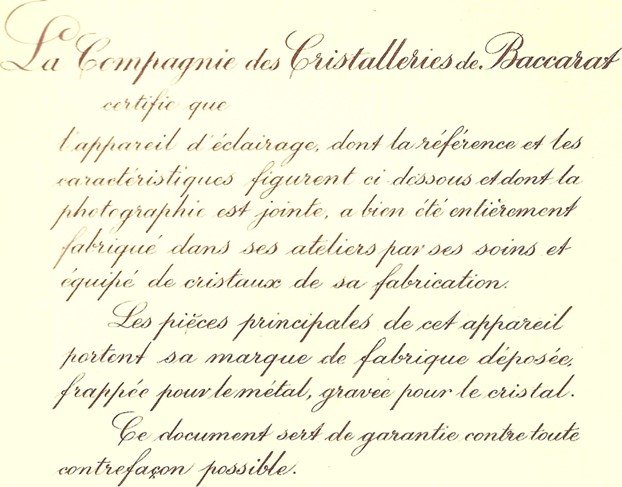 La Compagnie des Cristalleries de Baccarat
certifie que
l'appareil d'éclairage, dont la référence et les
caractéristiques figurent ci dessous et dont la
photographie est jointe, a bien été entièrement
fabriqué dans ses ateliers par ses soins et
équipé de cristaux de sa fabrication.
Les pièces principales de cet appareil
portent sa marque de fabrique déposée,
frappée pour le métal, gravée pour le cristal.
Ce document sert de garantie contre toute
contrefaçon possible.